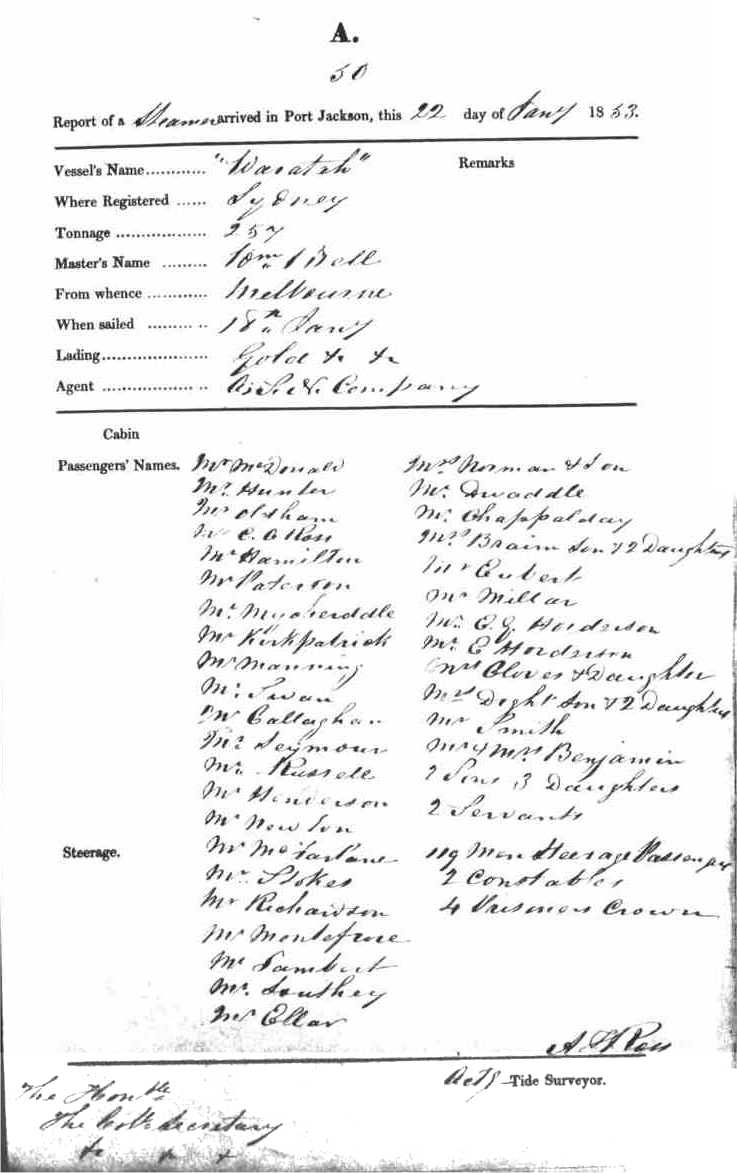 A.
50
Report of a Steamer arrived in Port Jackson, this 22 day of Jany 1853.
Vessel's Name............ "Waratah"
Remarks
Where Registered ...... Sydney
Tonnage .................. 257
Master's Name ......... Wm Bell
From whence ............ Melbourne
When sailed ......... .. 18th Jany
Lading..................... Gold & &
Agent .................. .. A. S. N. Company
Cabin
Passengers' Names. Mr McDonald
Mr Hunter
Mr Oldham
Mr C. Ross
Mr Hamilton
Mr Paterson
Mr
Mr Kirkpatrick
Mr Manning
Mr Swan
Mr Callaghan
Mr Seymour
Mr Russell
Mr Henderson
Mr Newton
Steerage.
Mr McFarlane
Mr Stokes
Mr Richardson
Mr Montefiore
Mr Lambert
Mr Southey
Mr Ellar
Mrs Norman & Son
Mr Dwaddle
Mr Chappalday
Mrs Braim Son & 2 Daughters
Mr
Mr Millar
Mr E. G. Hordsrson
Mr E Hordsrson
Mrs Gloves & Daughter
Mrs Dight Son & 2 Daughters
Mr Smith
Mr & Mrs Benjamin
2 Sons 3 Daughters
2 Servants
119 Men Steerage Passengers
2 Constables
4 Prisoners Crown
A H Ross
Actg —Tide Surveyor.
The Honble
The Col. Secretary
& & &